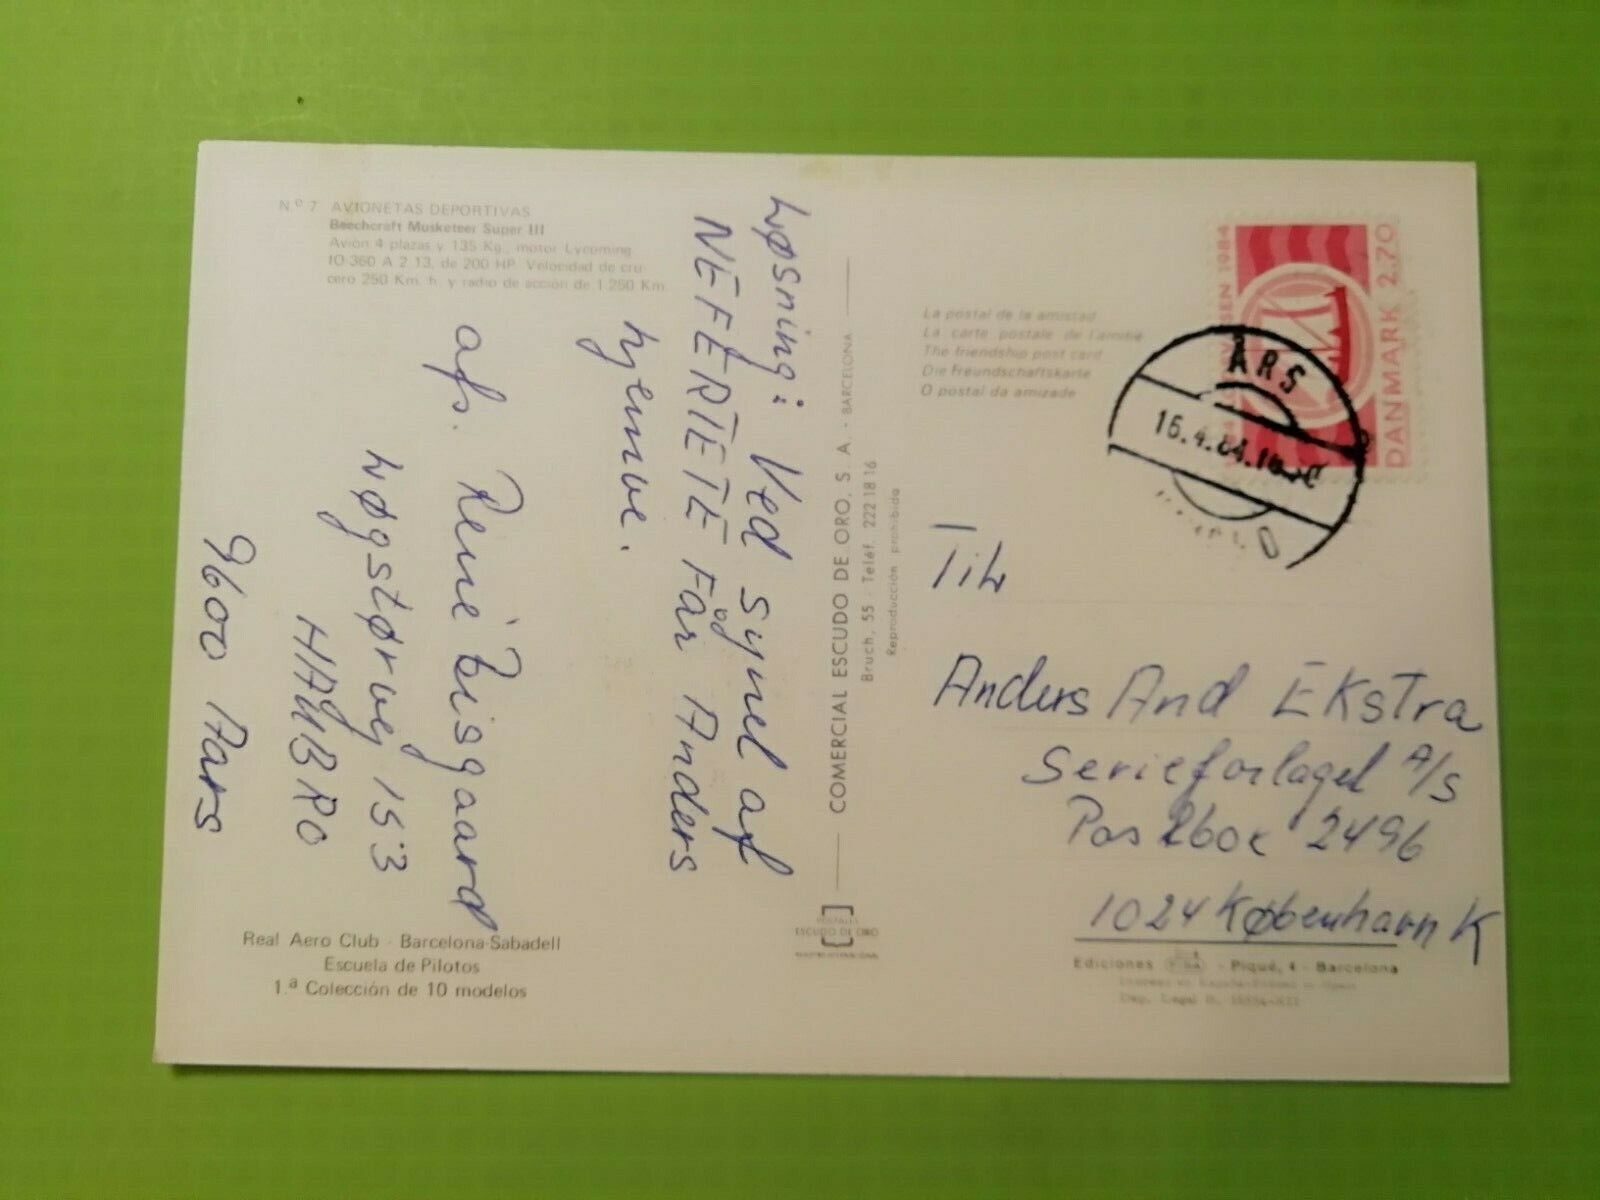 Nº 7 AVIONETAS DEPORTIVAS
Beechcraft Musketeer Super III
Avión 4 plazas y 135 Kg., motor Lycoming
IO-360 A 2 13, de 200 HP. Velocidad de cru-
cero 250 Km. h. y radio de acción de 1.250 Km.
Løsning: Ved synet af
NEFERTETE Får Anders
og
hjemve.
afs. René Bisgaard
Løgstørvej 153
HAUBRO
9600 Aars
Real Aero Club - Barcelona-Sabadell
Escuela de Pilotos
1.ª Colección de 10 modelos
COMERCIAL ESCUDO DE ORO, S. A. - BARCELONA
Bruch, 55 - Teléf. 222 18 16
Reproducción prohibida
POSTALES
ESCUDO DE ORO
La postal de la amistad
La carte postale de l'amitié
The friendship post card
Die Freundschaftskarte
O postal da amizade
1984
DANMARK 2.70
ARS
16.4.84
Til
Anders And Ekstra
Serieforlaget A/S
Postbox 2496
1024 København K
Ediciones FISA - Piqué, 4 - Barcelona